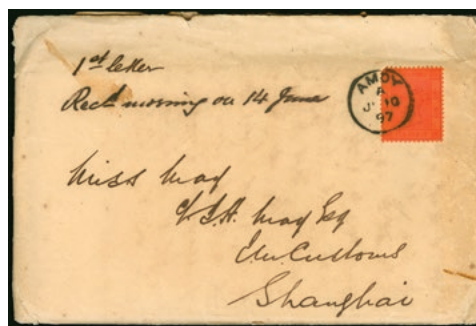 1st letter
Recd morning on 14 June
AMOY
A
JU 10
97
Miss May
c/o
May Esq
Customs
Shanghai